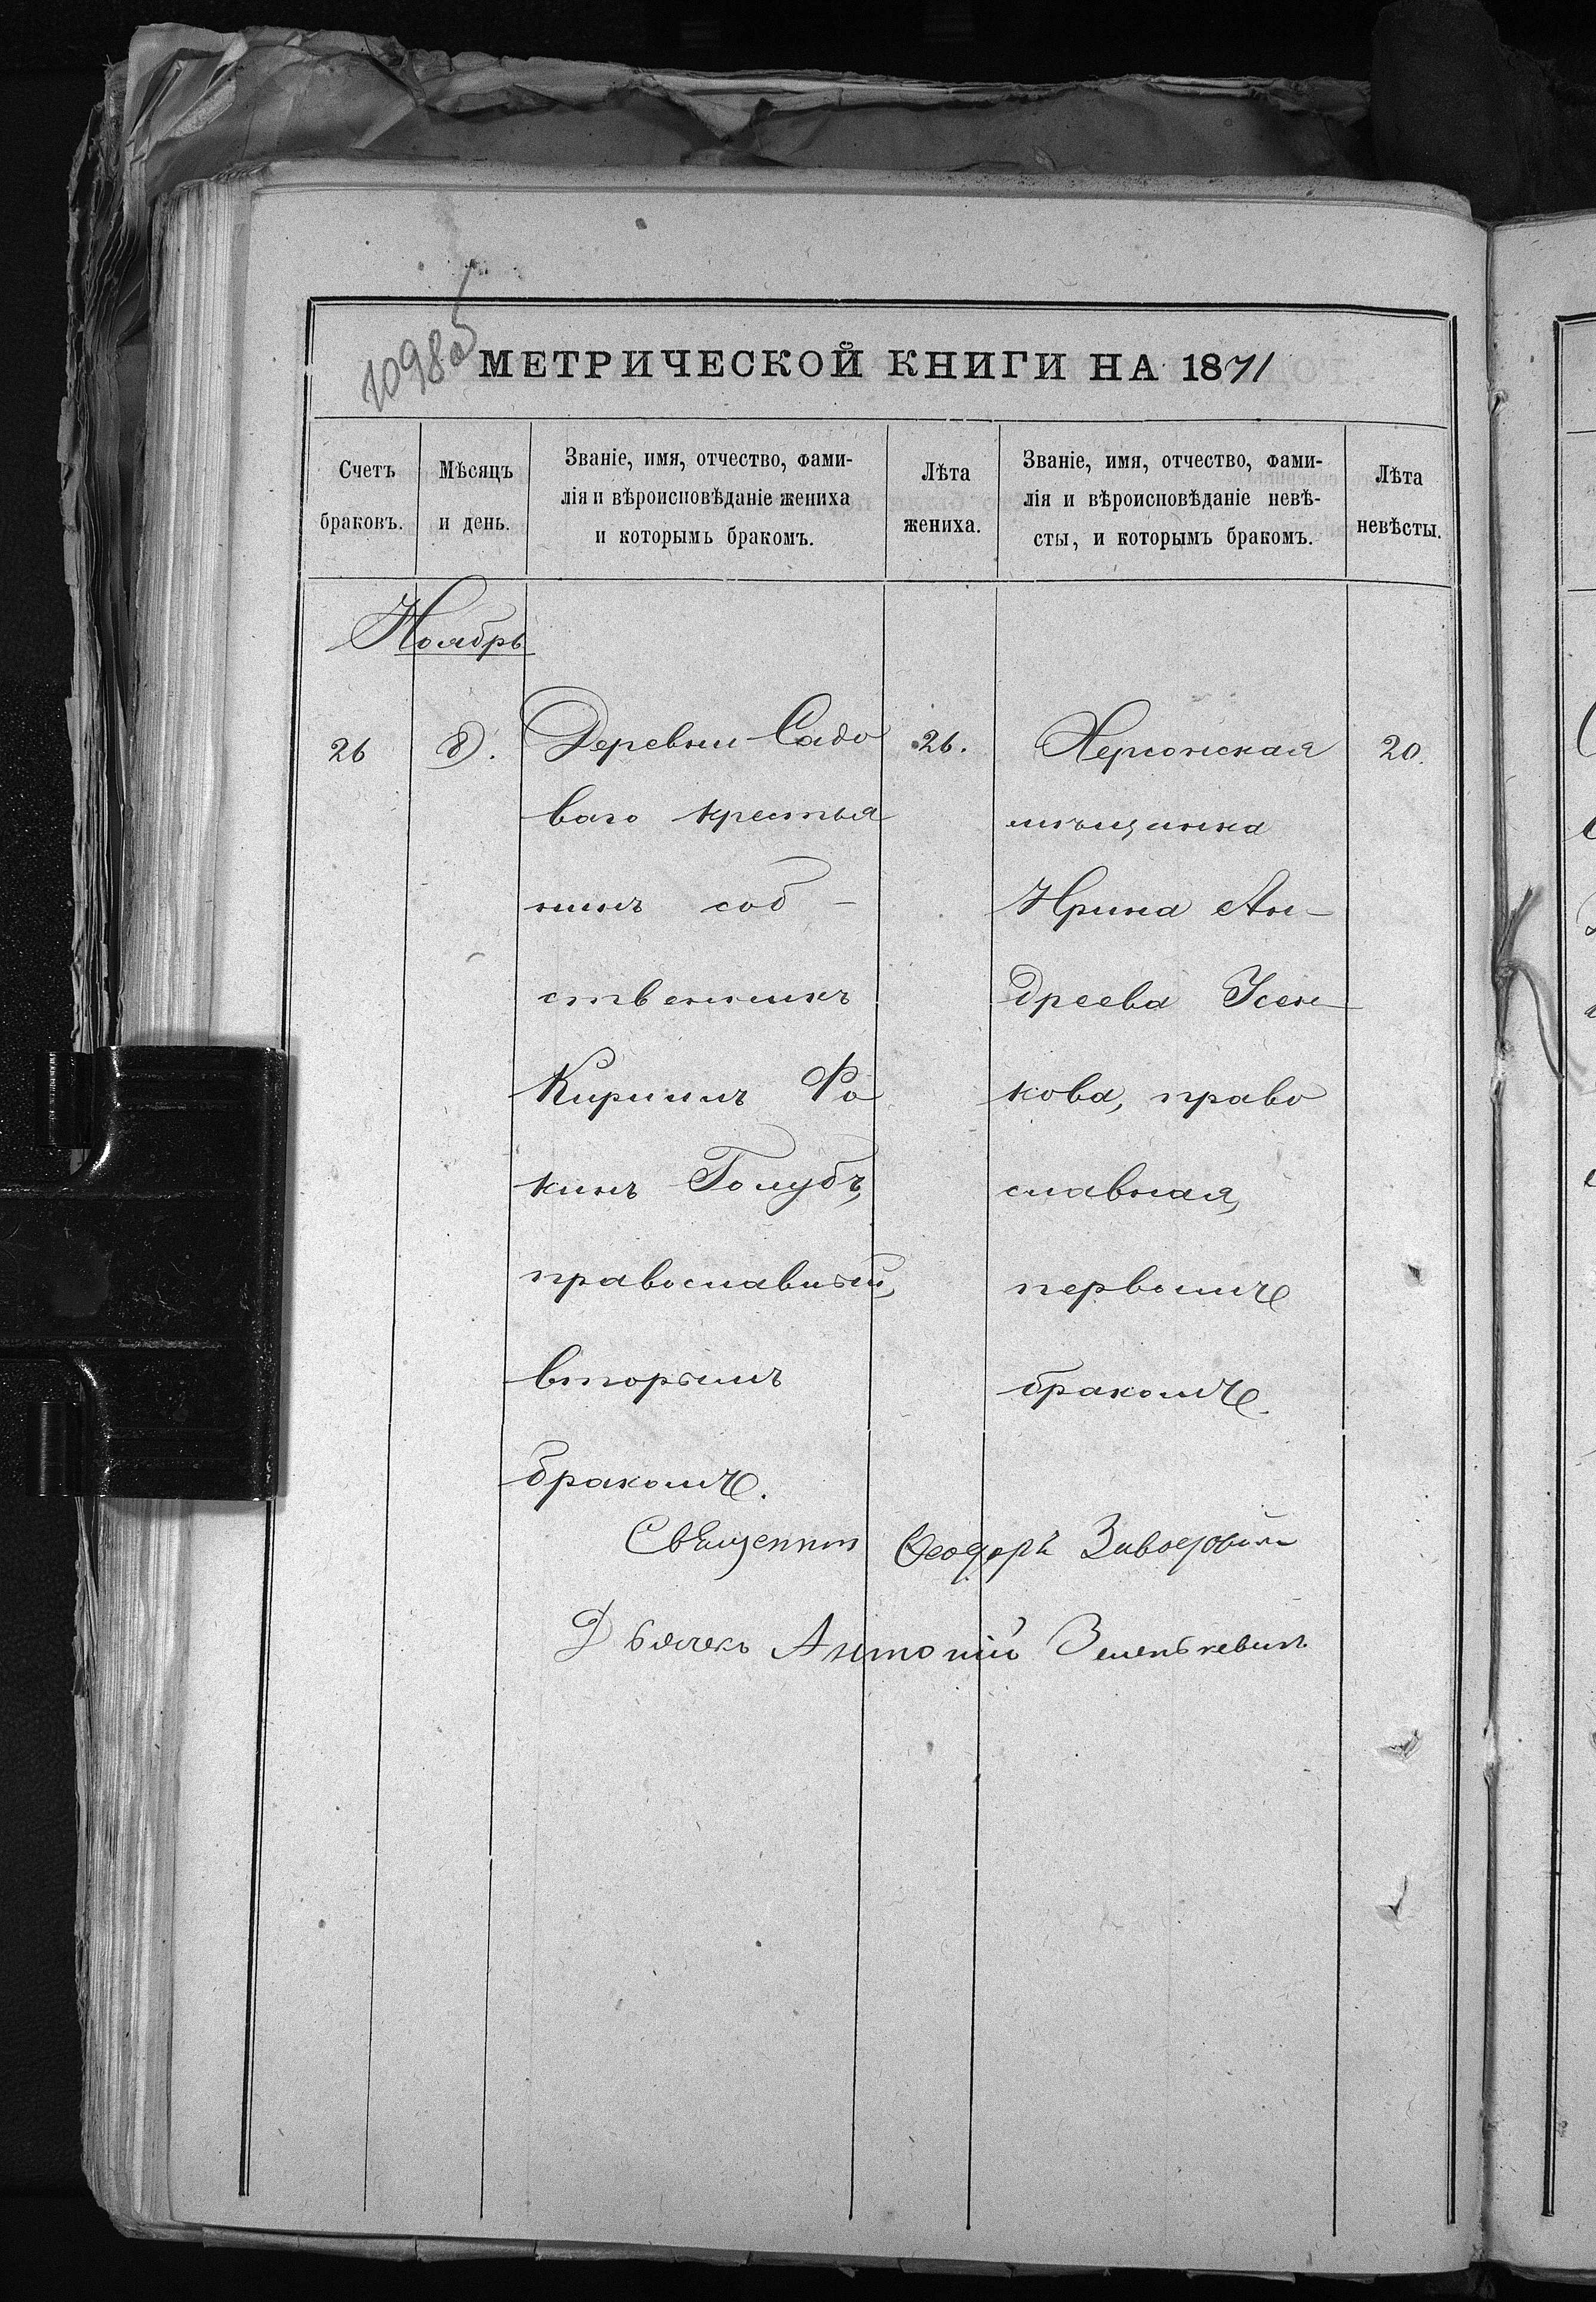 1098об
МЕТРИЧЕСКОЙ КНИГИ НА 1871
Счетъ браковъ.
Мѣсяцъ и день.
Званіе, имя, отчество, фами-
лія и вѣроисповѣданіе жениха
и которымъ бракомъ.
Лѣта жениха.
Званіе, имя, отчество, фами-
лія и вѣроисповѣданіе невѣ-
сты, и которымъ бракомъ.
Лѣта невѣсты.
Ноябрь
26
8.
Деревни Садо
ваго крестья
нинъ соб-
ственникъ
Кириллъ Фо
кинъ Голубъ,
православный,
вторымъ
бракомъ.
26.
Херсонская
мѣщанка
Ирина Ан-
дреева Усен-
кова, право
славная,
первымъ
бракомъ.
20.
Священник Ѳеодоръ
Дьячекъ Антоній Зеленкевичъ